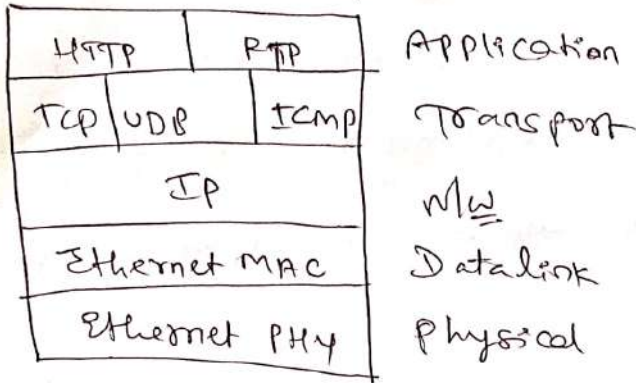 HTTP RTP Application
TCP UDP ICMP Transport
IP N/w
Ethernet MAC Datalink
Ethernet PHY Physical